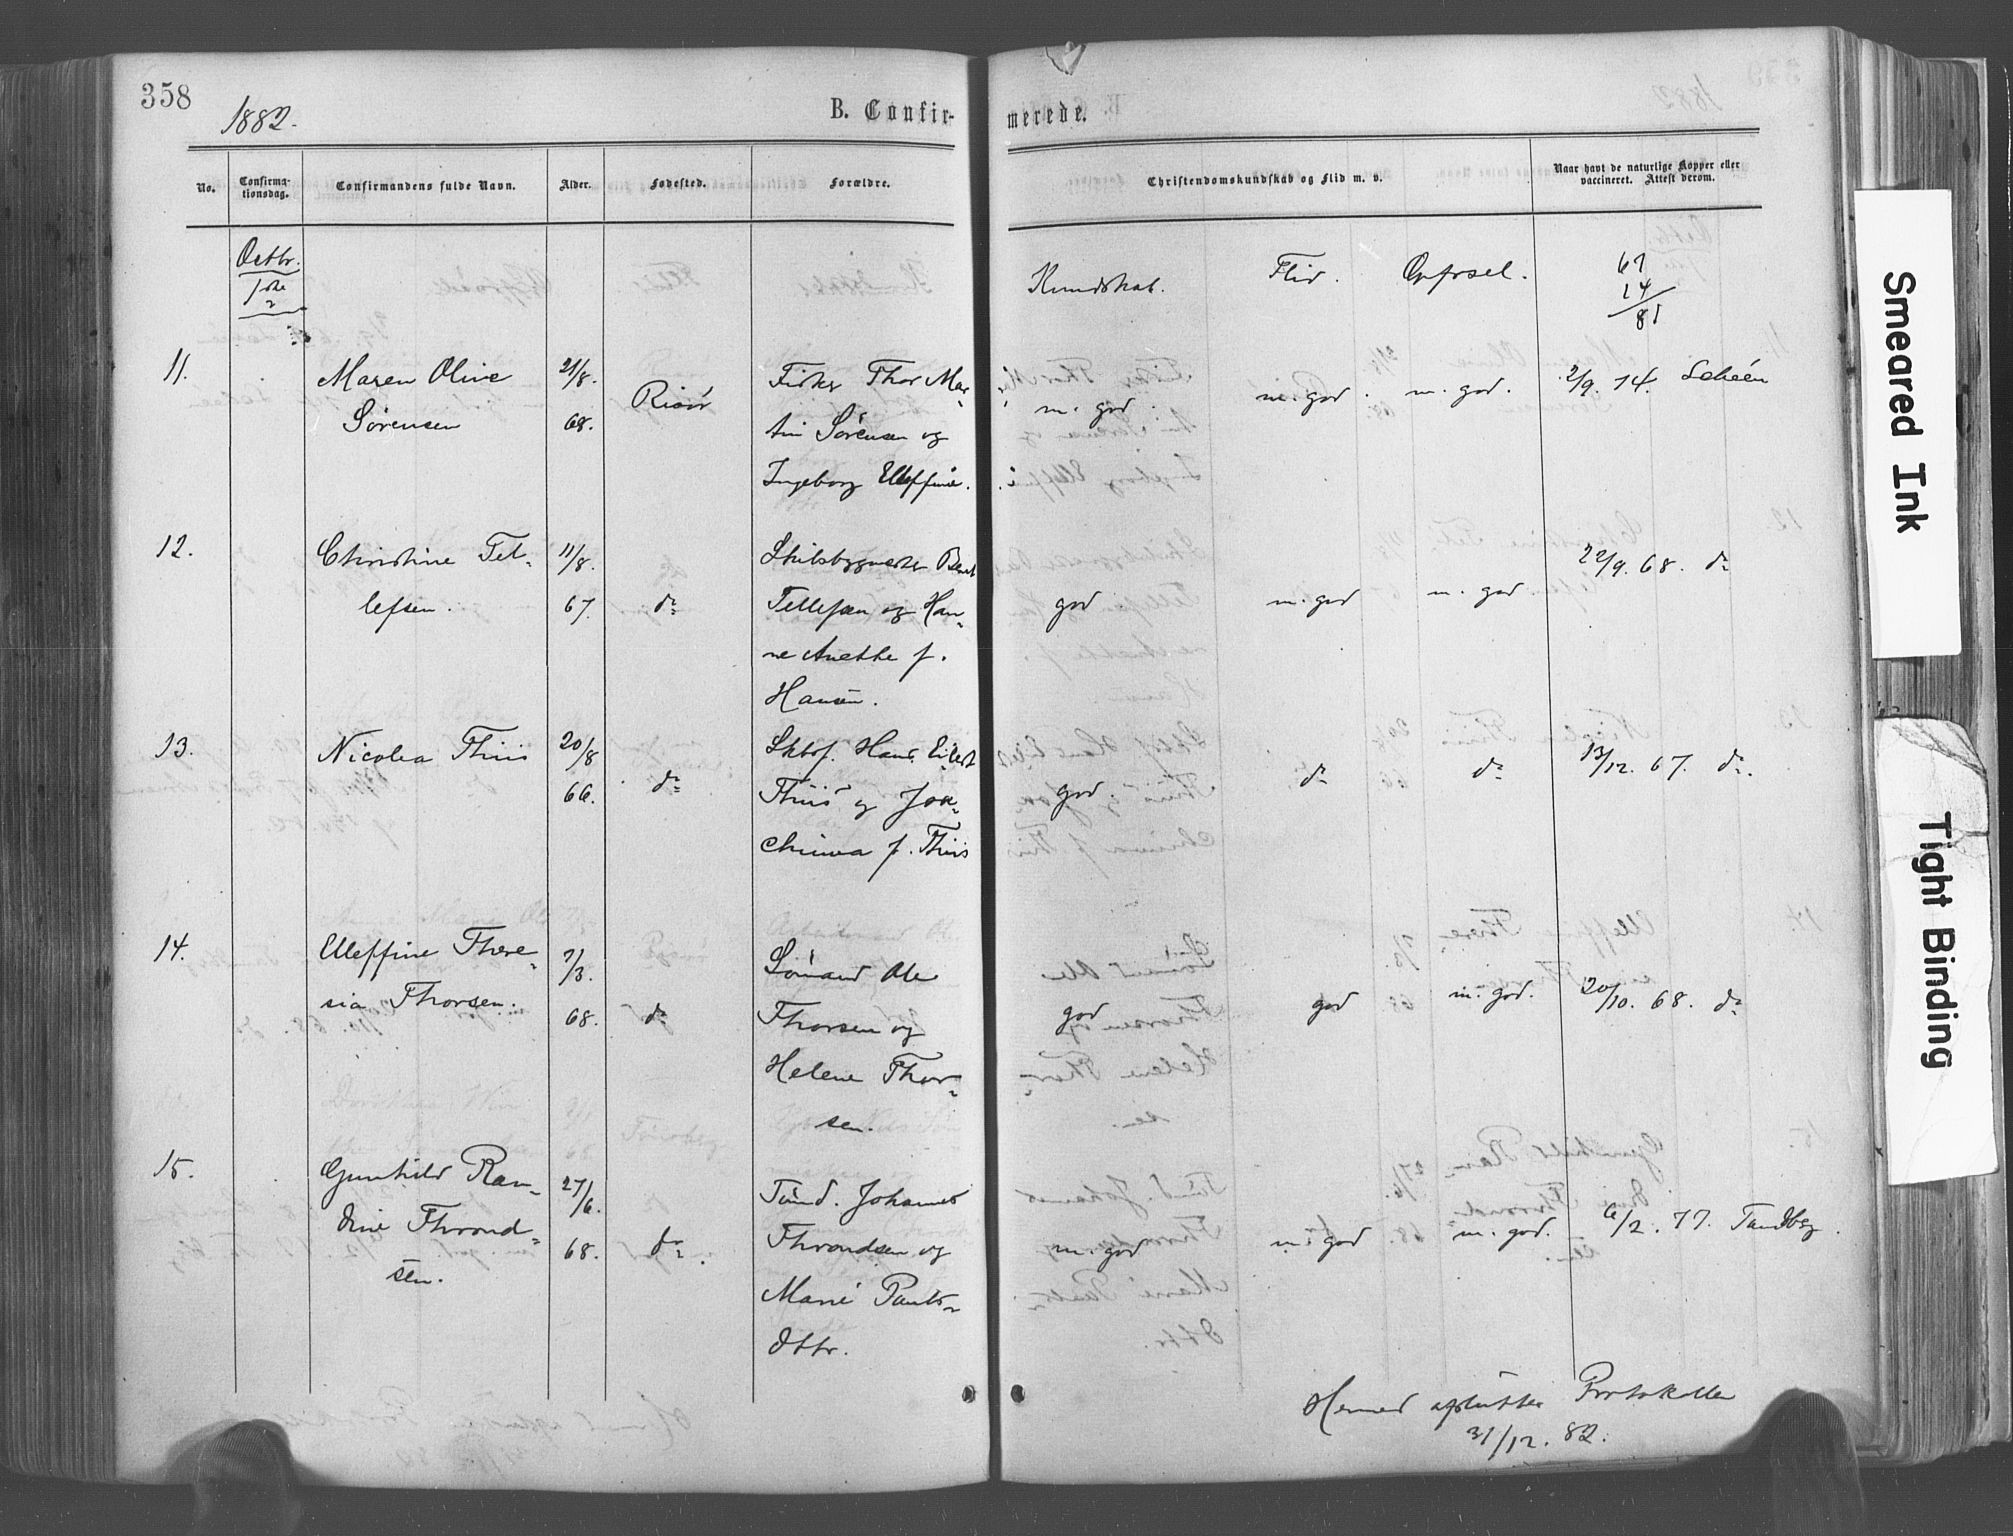 358
1882.
B. Confirmerede.
No.
Confirmationsdag.
Confirmandens fulde Navn.
Alder.
Fødested.
Forældre.
Christendomskundskab og Flid m. v.
Naar havt de naturlige Kopper eller vaccineret. Attest derom.
Octbr.
1ste
Kundskab.
Flid.
Opførsel.
67
14
81
11.
Maren Oline
Sørensen
21/8.
68.
Risør
Fisker Thor Mar-
tin Sørensen og
Ingeborg Elleffine.
m. god.
m. god.
m. god.
2/9. 74. Scheén
12.
Christine Tel-
lefsen.
11/8.
67.
do
Skibsbygmester Bernt
Tellefsen og Han-
ne Anette f.
Hansen.
god
m. god
m. god
22/9. 68. do
13.
Nicolea Thiis
20/8
66.
do
Skbsf. Hans Eilert
Thiis og Joa-
chima f. Thiis
god.
do
do
13/12. 67. do.
14.
Elleffine There-
sia Thorsen.
7/3.
68.
do
Sømand Ole
Thorsen og
Helene Thor-
sen.
god
god
m. god.
20/10. 68. do
15.
Gunhild Ran-
dine Thrond-
sen.
27/6.
68.
do.
Tømd. Johannes
Throndsen og
Marie Pauls-
dttr.
m. god
m. god
m. god.
6/2. 77. Tandberg.
Hermed afsluttes Protokollen
31/12. 82.
Smeared Ink
Tight Binding